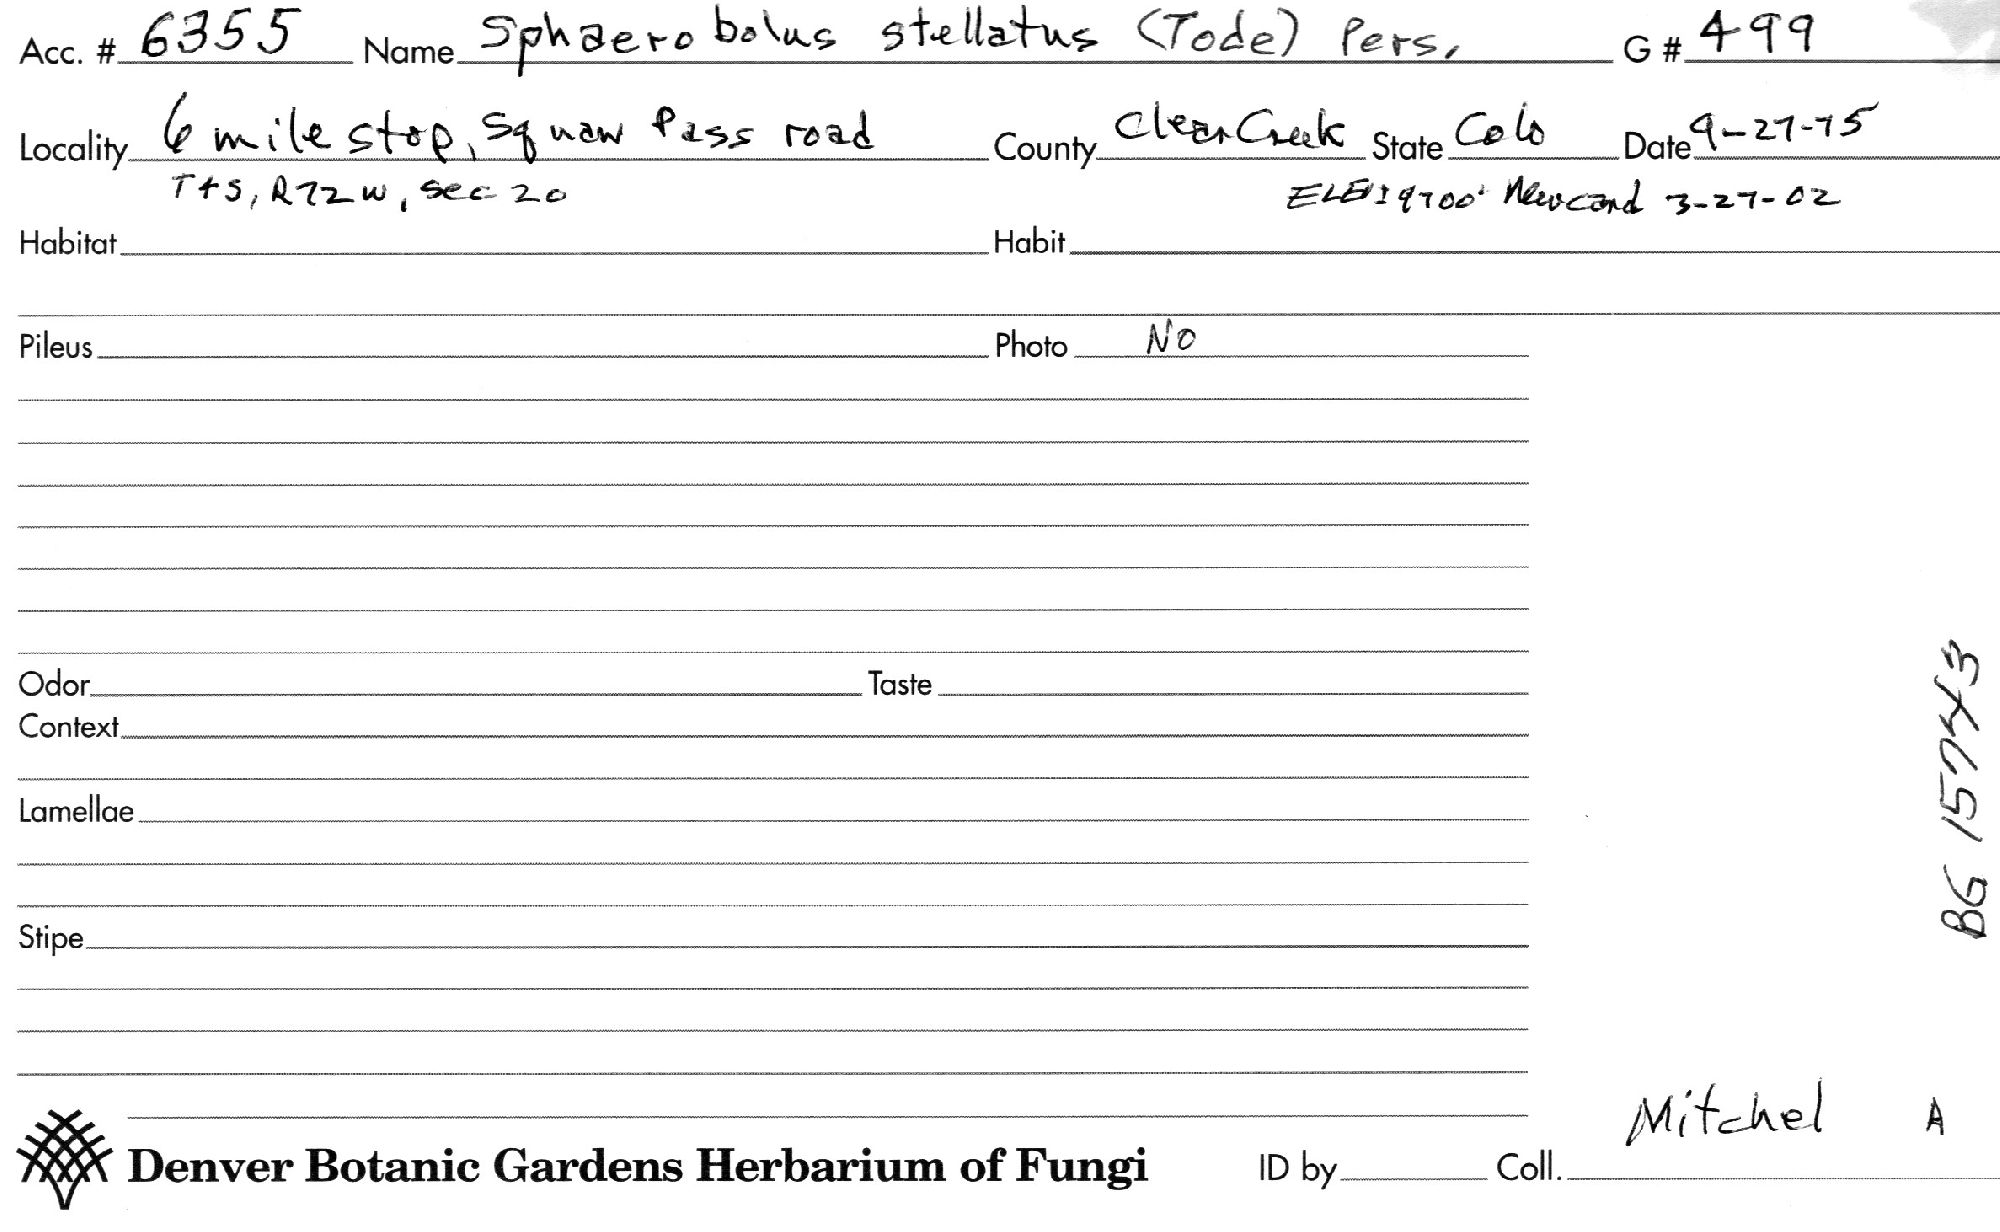 Acc. # 6355 Name Sphaerobolus stellatus (Tode) Pers. G # 499
Locality 6 mile stop, Squaw Pass road County Clear Creek State Colo Date 9-27-75
T4S, R72W, sec 20 ELEV: 9700' New card 3-27-02
Habitat Habit
Pileus Photo No
Odor Taste
Context
Lamellae
Stipe
BG 15743
Mitchel A
Denver Botanic Gardens Herbarium of Fungi ID by Coll.